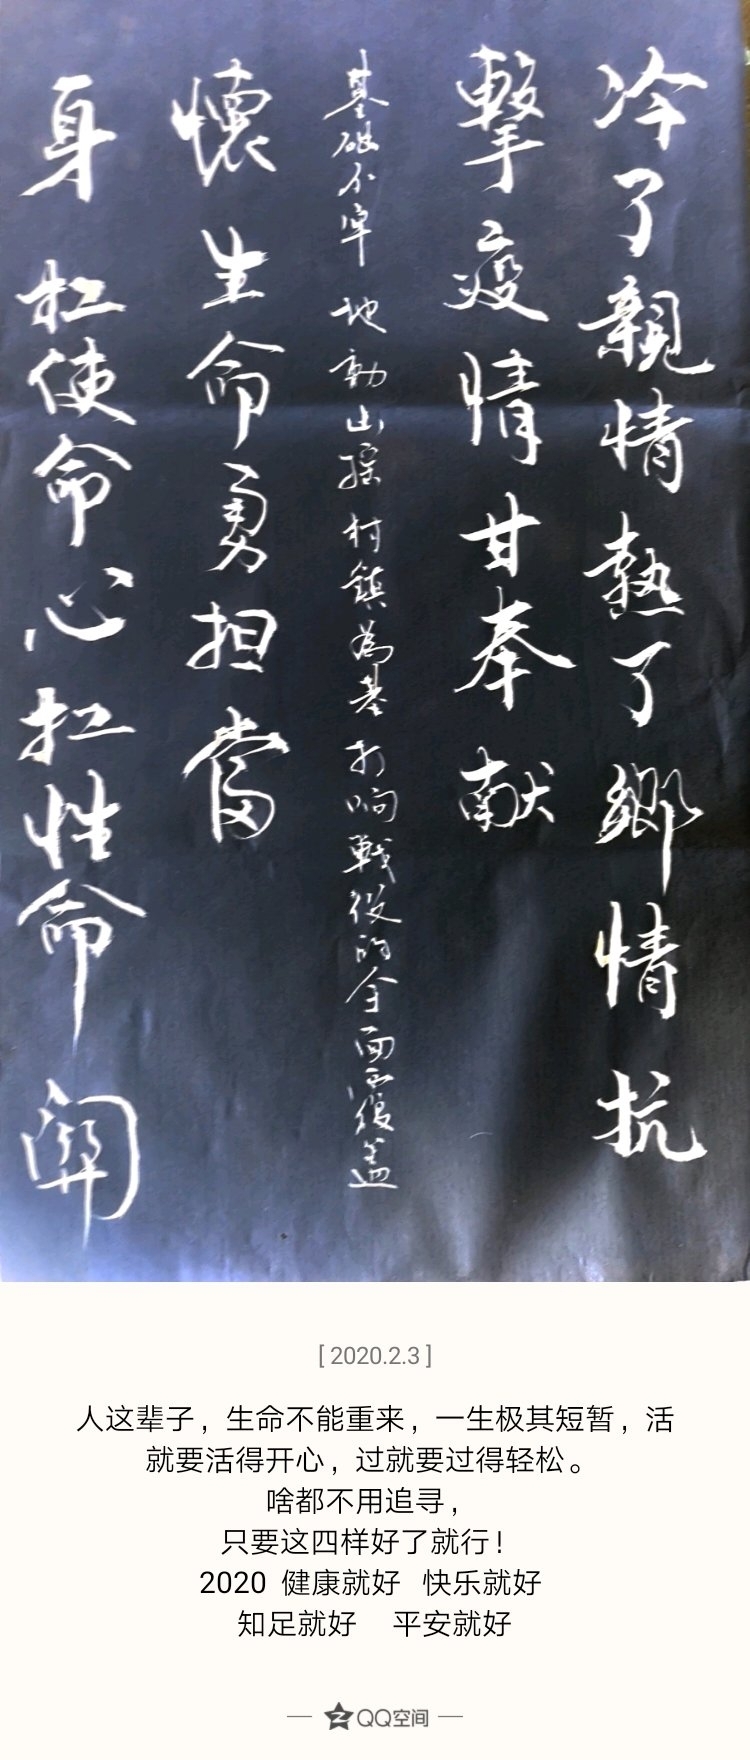 冷了親情熱了鄉情抗
擊疫情甘奉献
基础不牢地動山摇村鎮為基打响戰役的全面覆盖
懷生命勇担當
身扛使命心扛性命關
[ 2020.2.3 ]
人这辈子，生命不能重来，一生极其短暂，活
就要活得开心，过就要过得轻松。
啥都不用追寻，
只要这四样好了就行！
2020 健康就好 快乐就好
知足就好 平安就好
QQ空间